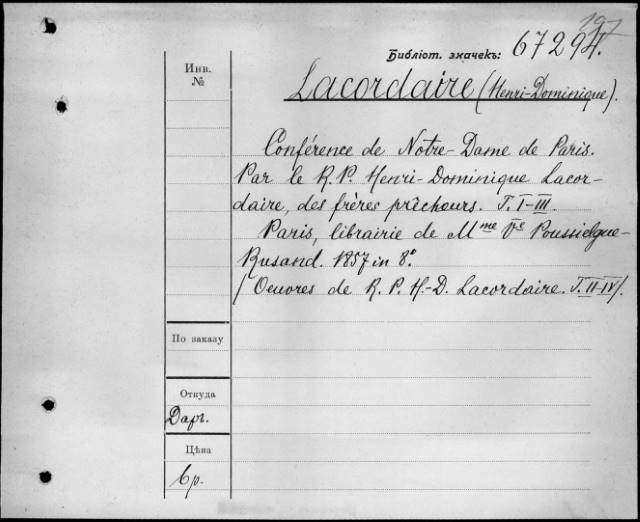 197
Библіот. значекъ: 67294.
Инв.
№
Lacordaire (Henri-Dominique).
Conférence de Notre-Dame de Paris.
Par le R. P. Henri-Dominique Lacor-
daire, des frères prêcheurs. T. I-III
Paris, librairie de Mme Ve Poussielgue-
Rusand. 1857 in 8°.
(Oeuvres de R. P. H.-D. Lacordaire. T. II-IV).
По заказу
Откуда
Даръ.
Цѣна
6 р.